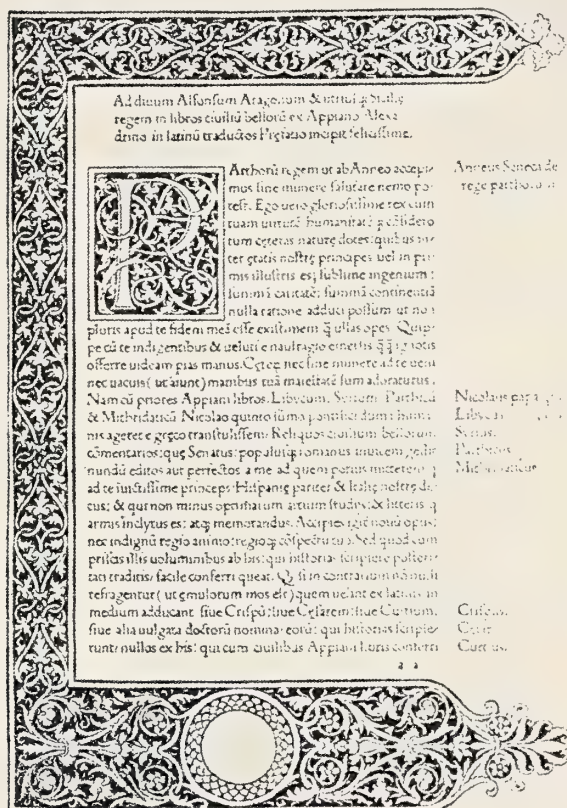 Ad diuum Alfonsum Aragonum & utriusq; Sicilię
regem in libros ciuiliū bellorū ex Appiano Alexā
drino in latinū traductos Pręfatio incipit felicissime.
PArthorū regem ut ab Anneo accepi-
mus sine munere salutare nemo po-
test. Ego uero gloriosissime rex cum
tuam uirtutē humanitatē q; cōsidero
tum cęteras naturę dotes: quibus in-
ter ętatis nostrę principes uel in pri
mis illustris es; sublime ingenium:
summā caritatē: summā continentiā
nulla ratione adduci possum ut nō
pluris apud te fidem meā esse existimem q̄ ullas opes. Quip-
pe cū te indigentibus & ueluti e naufragio emersis q̄q̄ ignotis
offerre uideam pias manus. Cęterū nec sine munere ad te ueni
nec uacuis (ut aiunt) manibus tuā maiestatē sum adoraturus.
Nam cū priores Appiani libros. Libycum. Syrium. Parthicū
& Mithridaticū Nicolao quinto sūmo pontifici dum i huma
nis ageret e gręco transtulissem: Reliquos ciuilium bellorum
cōmentarios: que Senatus: populusq; romanus inuicem gessit
nundū editos aut perfectos a me ad quem potius mitterem q̄
ad te iuictissime princeps: Hispanię pariter & Italię nostrę de
cus; & qui non minus optimarum artium studiis: & litteris q̄
armis inclytus es: atq; memorandus. Accipies igit nouū opus:
nec indignū regio animo: regioq; cōspectu tuo. Sed quod cum
priscis illis uoluminibus ab his: qui historias scripsere posteri-
tati traditis: facile conferri queat. Q; si in contrarium nōnulli
refragentur (ut ęmulorum mos est) quem uelint ex latinis in
medium adducant siue Crispū: siue Cęsarem: siue Curtium.
siue alia uulgata doctorū nomina eorū: qui historias scripse-
runt: nullos ex his: qui cum ciuilibus Appiani libris conferri
a
Anneus Seneca de
rege parthorum
Nicolaus papa
Syrius.
Parthicus
Mithridaticus
Crispus.
Curtius.